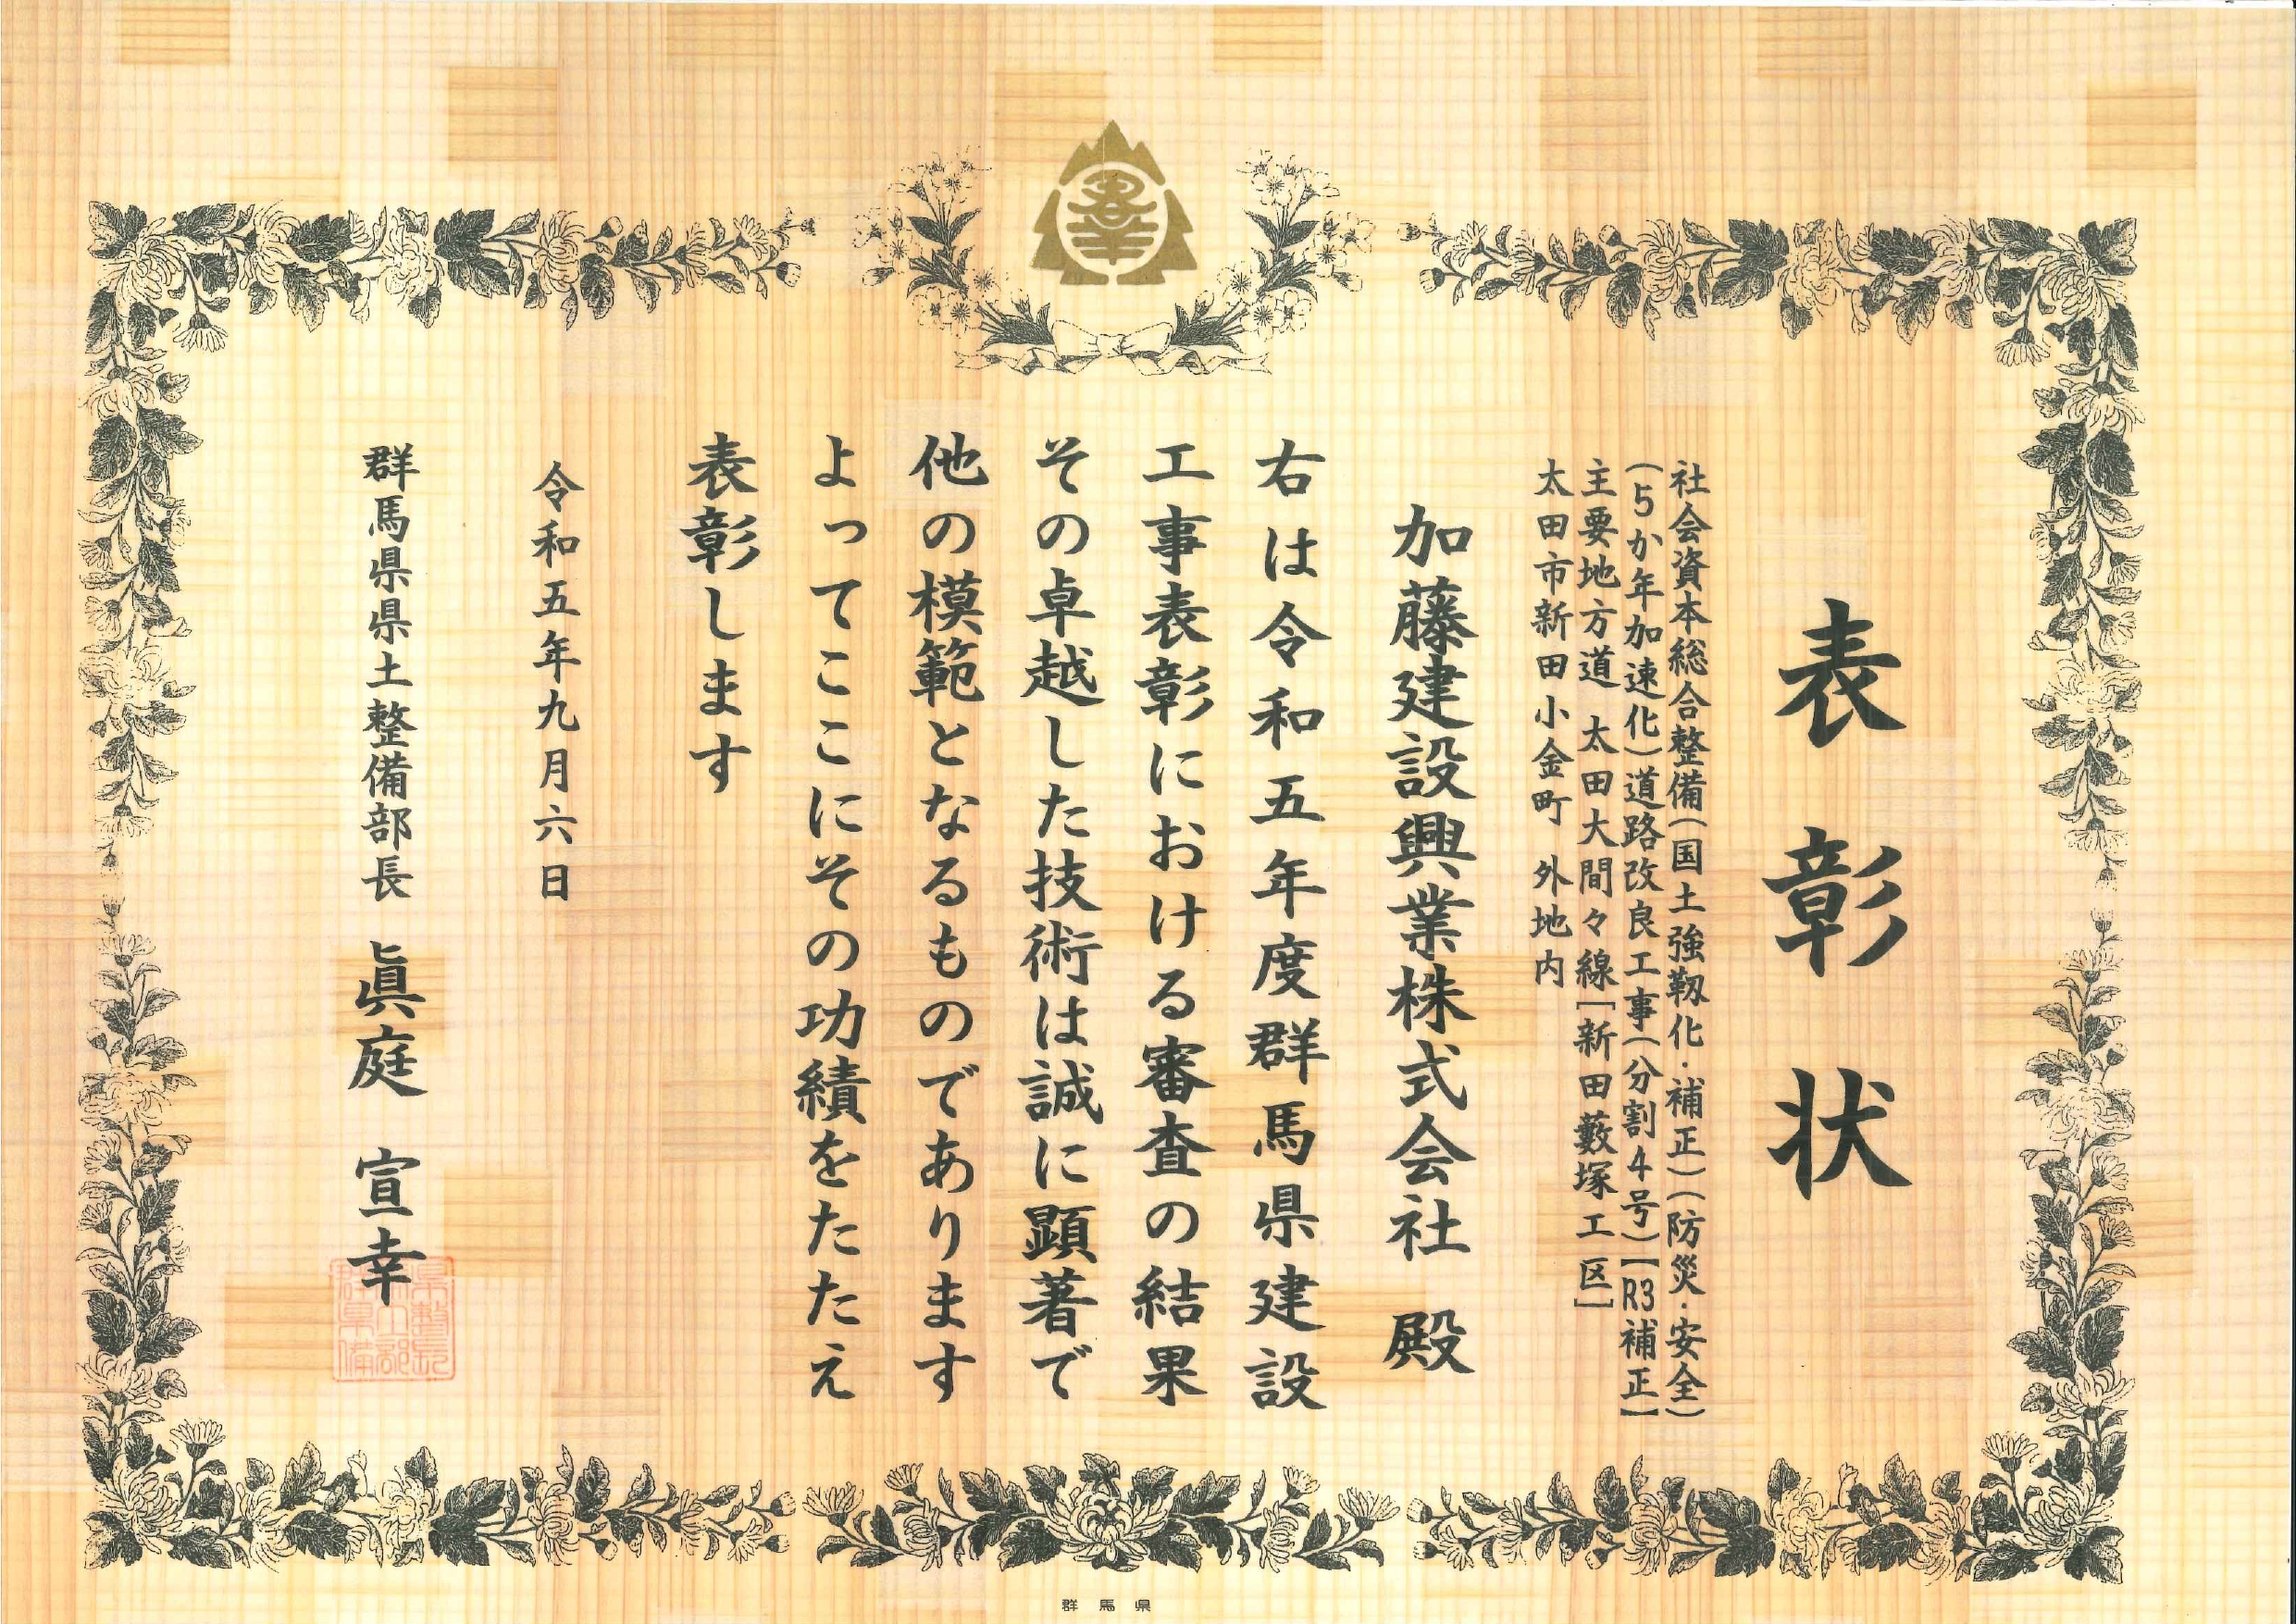 表彰状
社会資本総合整備(国土強靱化・補正)(防災・安全)
(5か年加速化)道路改良工事(分割4号)【R3補正】
主要地方道 太田大間々線[新田藪塚工区]
太田市新田小金町 外地内
加藤建設興業株式会社 殿
右は令和五年度群馬県建設
工事表彰における審査の結果
その卓越した技術は誠に顕著で
他の模範となるものであります
よってここにその功績をたたえ
表彰します
令和五年九月六日
群馬県県土整備部長 眞庭 宣幸
群馬県